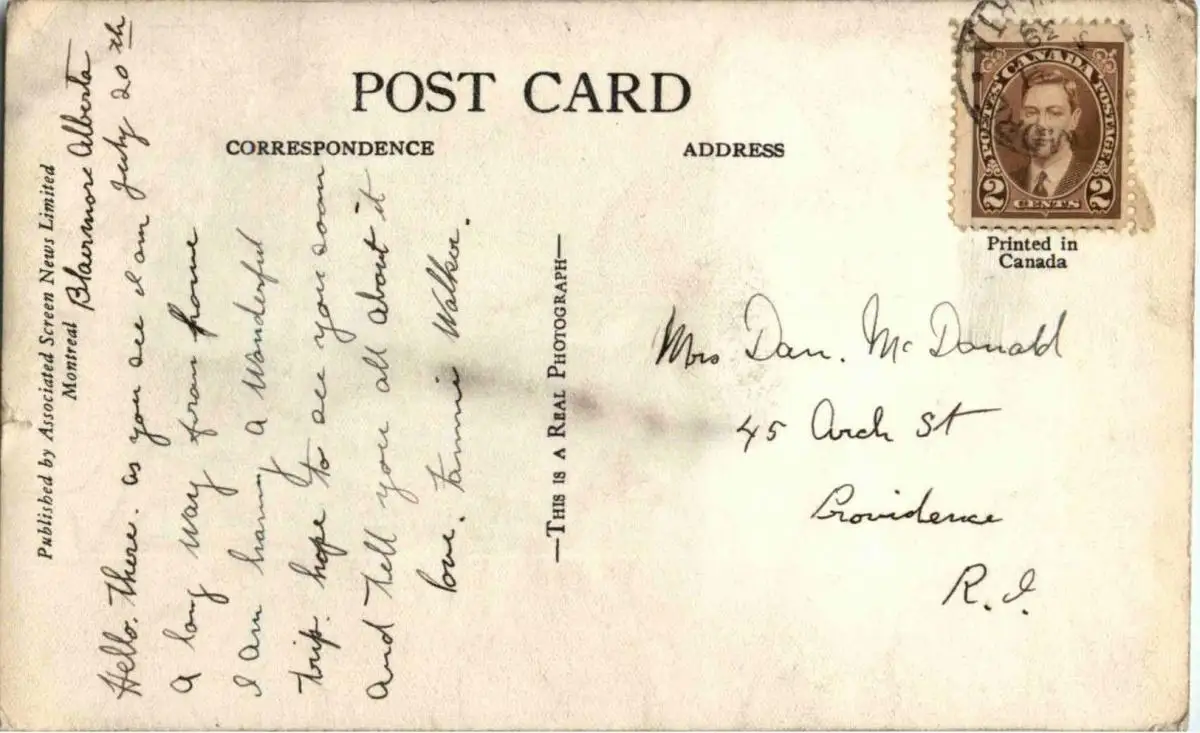 POST CARD
CORRESPONDENCE
ADDRESS
Published by Associated Screen News Limited
Montreal
Blairmore Alberta
July 20th
Hello. There. as you see I am
a long way from home
I am having a Wonderful
trip. hope to see you soon
and tell you all about it
love. Tannie Walker.
—THIS IS A REAL PHOTOGRAPH—
CANADA
POSTES POSTAGE
2 CENTS 2
Printed in
Canada
Mrs Dan. McDonald
45 Arch St
Providence
R.I.